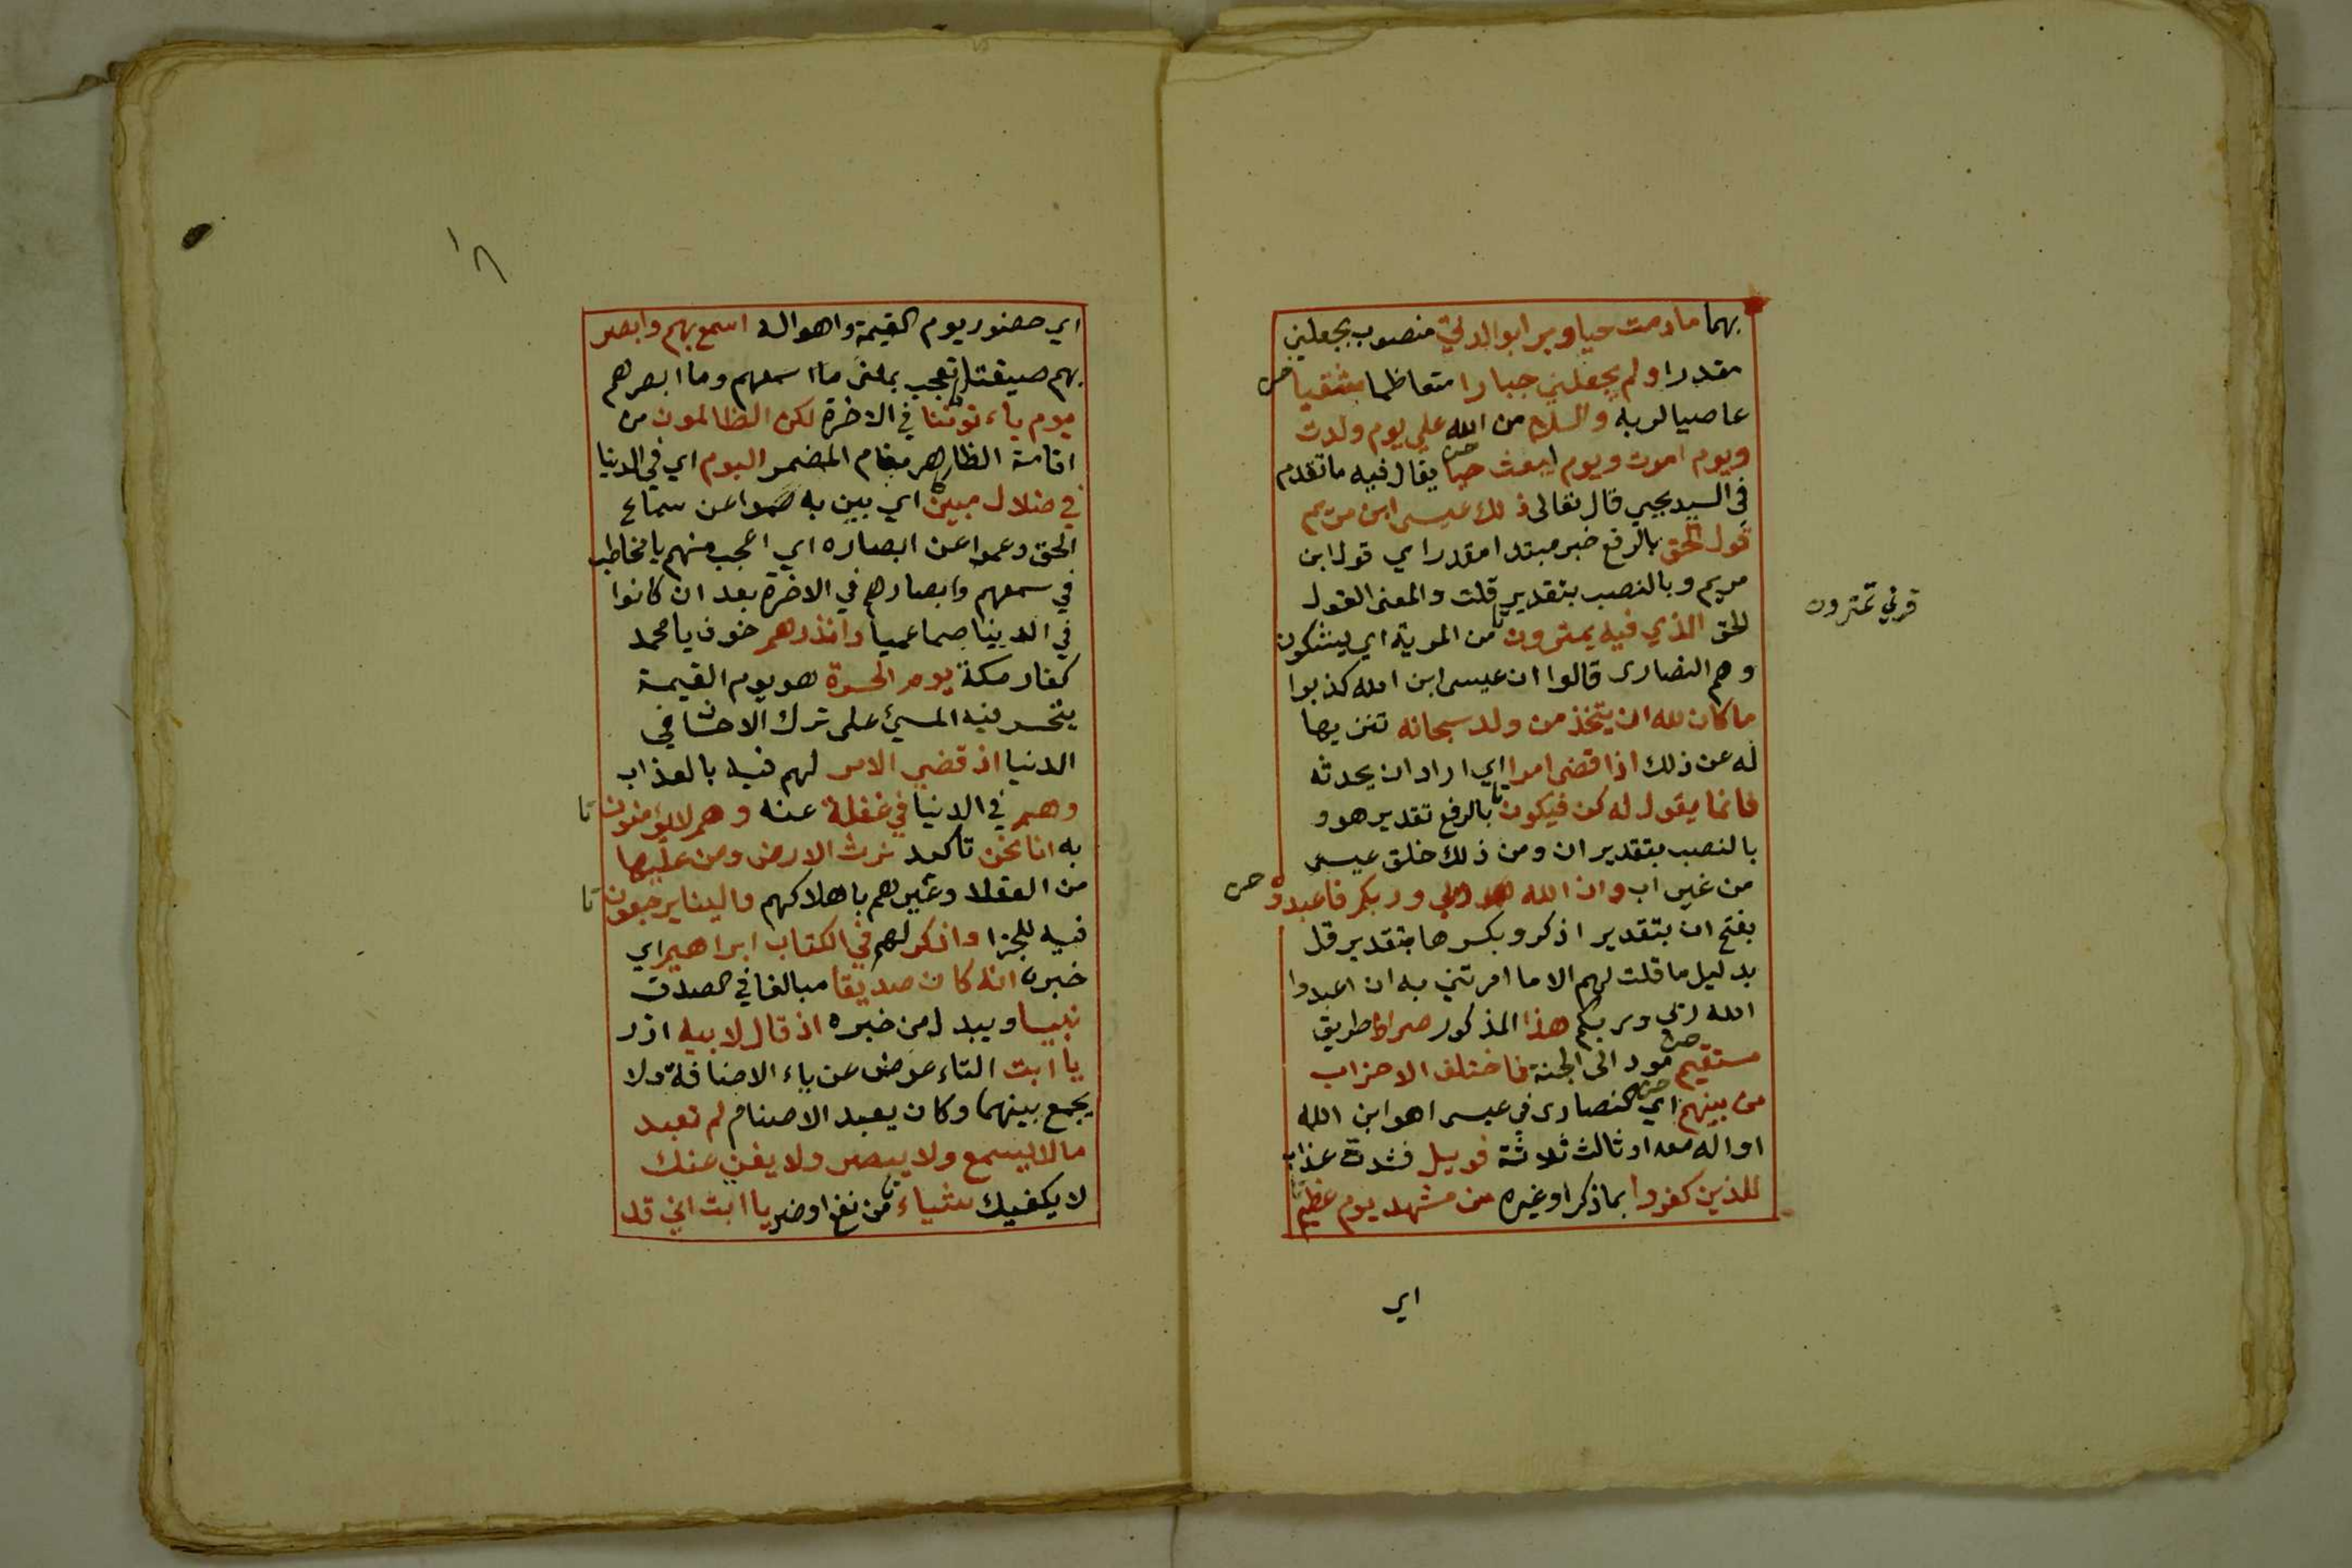 بهما مادمت حيا وبرا بوالدتي منصوب بجعلني
مقدرا ولم يجعلني جبارا متعاظما شقيا
عاصيا لربه والسلام من الله علي يوم ولدت
ويوم اموت ويوم ابعث حيا يقال فيه ما تقدم
في السيد يحيي قال تعالى ذلك عيسى ابن مريم
قول الحق بالرفع خبر مبتدا مقدر اي قول ابن
مريم وبالنصب بتقدير قلت والمعنى القول
الحق الذي فيه يمترون من المرية اي يشكون
وهم النصارى قالوا ان عيسى ابن الله كذبوا
ما كان لله ان يتخذ من ولد سبحانه تنزيها
له عن ذلك اذا قضى امرا اي اراد ان يحدثه
فانما يقول له كن فيكون بالرفع تقدير هو و
بالنصب بتقدير ان ومن ذلك خلق عيسى
من غير اب وان الله ربي وربكم فاعبدوه
بفتح ان بتقدير اذكر وبكسرها بتقدير قل
بدليل ما قلت لهم الا ما امرتني به ان اعبدوا
الله ربي وربكم هذا المذكور صراط طريق
مستقيم مود الى الجنة فاختلف الاحزاب
من بينهم اي النصارى في عيسى اهو ابن الله
او اله معه او ثالث ثلاثة فويل فشدة عذاب
للذين كفروا بما ذكر او غيره من مشهد يوم عظيم
قرئ تمترون
اي
١٨
اي حضور يوم القيمة واهواله اسمع بهم وابصر
بهم صيغتا تعجب بمعنى ما اسمعهم وما ابصرهم
يوم ياءتوننا في الاخرة لكن الظالمون من
اقامة الظاهر مقام المضمر اليوم اي في الدنيا
في ضلال مبين اي بين به صموا عن سماع
الحق وعموا عن ابصاره اي اعجب منهم يا مخاطب
في سمعهم وابصارهم في الاخرة بعد ان كانوا
في الدنيا صما عميا وانذرهم خوف يا محمد
كفار مكة يوم الحسرة هو يوم القيمة
يتحسر فيه المسئ على ترك الاحسان في
الدنيا اذ قضي الامر لهم فيه بالعذاب
وهم في الدنيا في غفلة عنه وهم لا يؤمنون
به انا نحن تاكيد نرث الارض ومن عليها
من العقلا وغيرهم باهلاكهم والينا يرجعون
فيه للجزا واذكر لهم في الكتاب ابراهيم اي
خبره انه كان صديقا مبالغا في الصدق
نبيا ويبدل من خبره اذ قال لابيه ازر
يا ابت التاء عوض عن ياء الاضافة ولا
يجمع بينهما وكان يعبد الاصنام لم تعبد
ما لا يسمع ولا يبصر ولا يغني عنك
لا يكفيك شياء من نفع او ضر يا ابت اني قد